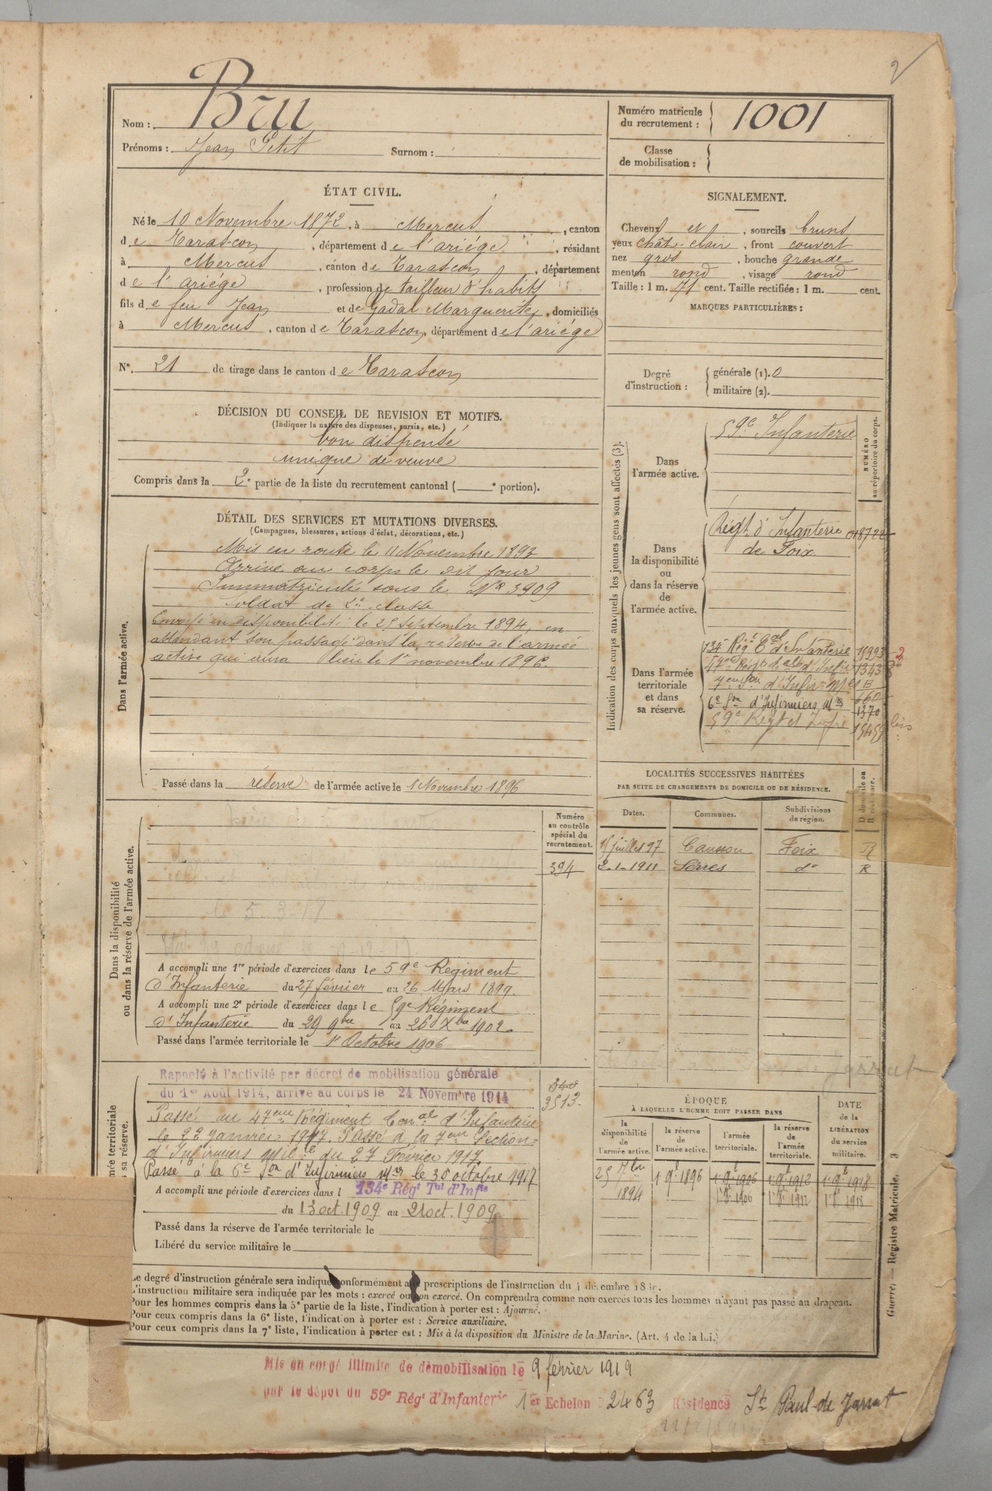 2
Nom : Bru
Prénoms : Jean Petit Surnom :
Numéro matricule du recrutement : 1001
Classe de mobilisation :
ÉTAT CIVIL.
Né le 10 Novembre 1872, à Mercus, canton
de Tarascon, département de l'ariége, résidant
à Mercus, canton de Tarascon, département
de l'ariége, profession de tailleur d'habits
fils de feu Jean et de Gadal Marguerite, domiciliés
à Mercus, canton de Tarascon, département de l'ariége
N° 21 de tirage dans le canton de Tarascon
SIGNALEMENT.
Cheveux et, sourcils bruns
yeux chât. clair, front couvert
nez gros, bouche grande
menton rond, visage rond
Taille : 1 m. 71 cent. Taille rectifiée : 1 m. cent.
MARQUES PARTICULIÈRES :
Degré d'instruction : générale (1). 0
militaire (2).
DÉCISION DU CONSEIL DE REVISION ET MOTIFS.
(Indiquer la nature des dispenses, sursis, etc.)
bon dispensé
unique de veuve
Compris dans la 2e partie de la liste du recrutement cantonal ( e portion).
DÉTAIL DES SERVICES ET MUTATIONS DIVERSES.
(Campagnes, blessures, actions d'éclat, décorations, etc.)
Dans l'armée active.
Mis en route le 11 Novembre 1893
Arrivé au corps le dit jour
Immatriculé sous le N° 3909
Soldat de 2e classe
Envoyé en disponibilité le 25 septembre 1894, en
attendant son passage dans la réserve de l'armée
active qui aura lieu le 1er novembre 1896
Passé dans la réserve de l'armée active le 1 Novembre 1896
Indication des corps auxquels les jeunes gens sont affectés (3).
NUMÉRO au répertoire du corps.
Dans l'armée active.
59e Infanterie
Dans la disponibilité ou dans la réserve de l'armée active.
Régt d'Infanterie 018722
de Foix
Dans l'armée territoriale et dans sa réserve.
134e Rég. Tal d'Infanterie 11993
47e Régt d'Infrie 1343
7em Son d'Infirs Mres
6e Son d'Infirmiers Mres 1370
59e Regt d'Infie 15459 bis
LOCALITÉS SUCCESSIVES HABITÉES
PAR SUITE DE CHANGEMENTS DE DOMICILE OU DE RÉSIDENCE.
Dates. Communes. Subdivisions de région. D domicile ou R résidence.
15 juillet 97 Caussou Foix R
1911 Serres do R
Dans la disponibilité ou dans la réserve de l'armée active.
Numéro au contrôle spécial du recrutement.
394
A accompli une 1re période d'exercices dans le 59e Régiment
d'Infanterie du 27 février au 26 Mars 1899
A accompli une 2e période d'exercices dans le 59e Régiment
d'Infanterie du 29 9bre au 26 Xbre 1902
Passé dans l'armée territoriale le 1er Octobre 1906
Rappelé à l'activité par décret de mobilisation générale
du 1er Août 1914, arrivé au corps le 24 Novembre 1914
3513
Passé au 47eme Régiment d'Infanterie
le 22 janvier 1917. Passé à la 7em Section
d'Infirmiers Milre du 27 Février 1917
Passé à la 6e Son d'Infirmiers Mres le 30 octobre 1917
A accompli une période d'exercices dans l 134e Régt Tal d'Infie
du 13 oct. 1909 au 21 oct. 1909
Passé dans la réserve de l'armée territoriale le
Libéré du service militaire le
ÉPOQUE
À LAQUELLE L'HOMME DOIT PASSER DANS
la disponibilité de l'armée active. la réserve de l'armée active. l'armée territoriale. la réserve de l'armée territoriale.
DATE de la LIBÉRATION du service militaire.
25 7bre 1894 1 9e 1896 1906 1912 1918
1906 1912 1918
Guerre. — Registre Matricule. 3
Le degré d'instruction générale sera indiqué conformément aux prescriptions de l'instruction du 4 décembre
L'instruction militaire sera indiquée par les mots : exercé ou non exercé. On comprendra comme non exercés tous les hommes n'ayant pas passé au drapeau.
Pour les hommes compris dans la 5e partie de la liste, l'indication à porter est : Ajourné.
Pour ceux compris dans la 6e liste, l'indication à porter est : Service auxiliaire.
Pour ceux compris dans la 7e liste, l'indication à porter est : Mis à la disposition du Ministre de la Marine. (Art. 4 de la loi.)
Mis en congé illimité de démobilisation le 9 février 1919
par le dépôt du 59e Régt d'Infanterie 1er Echelon 2463 Résidence St Paul-de Jarrat